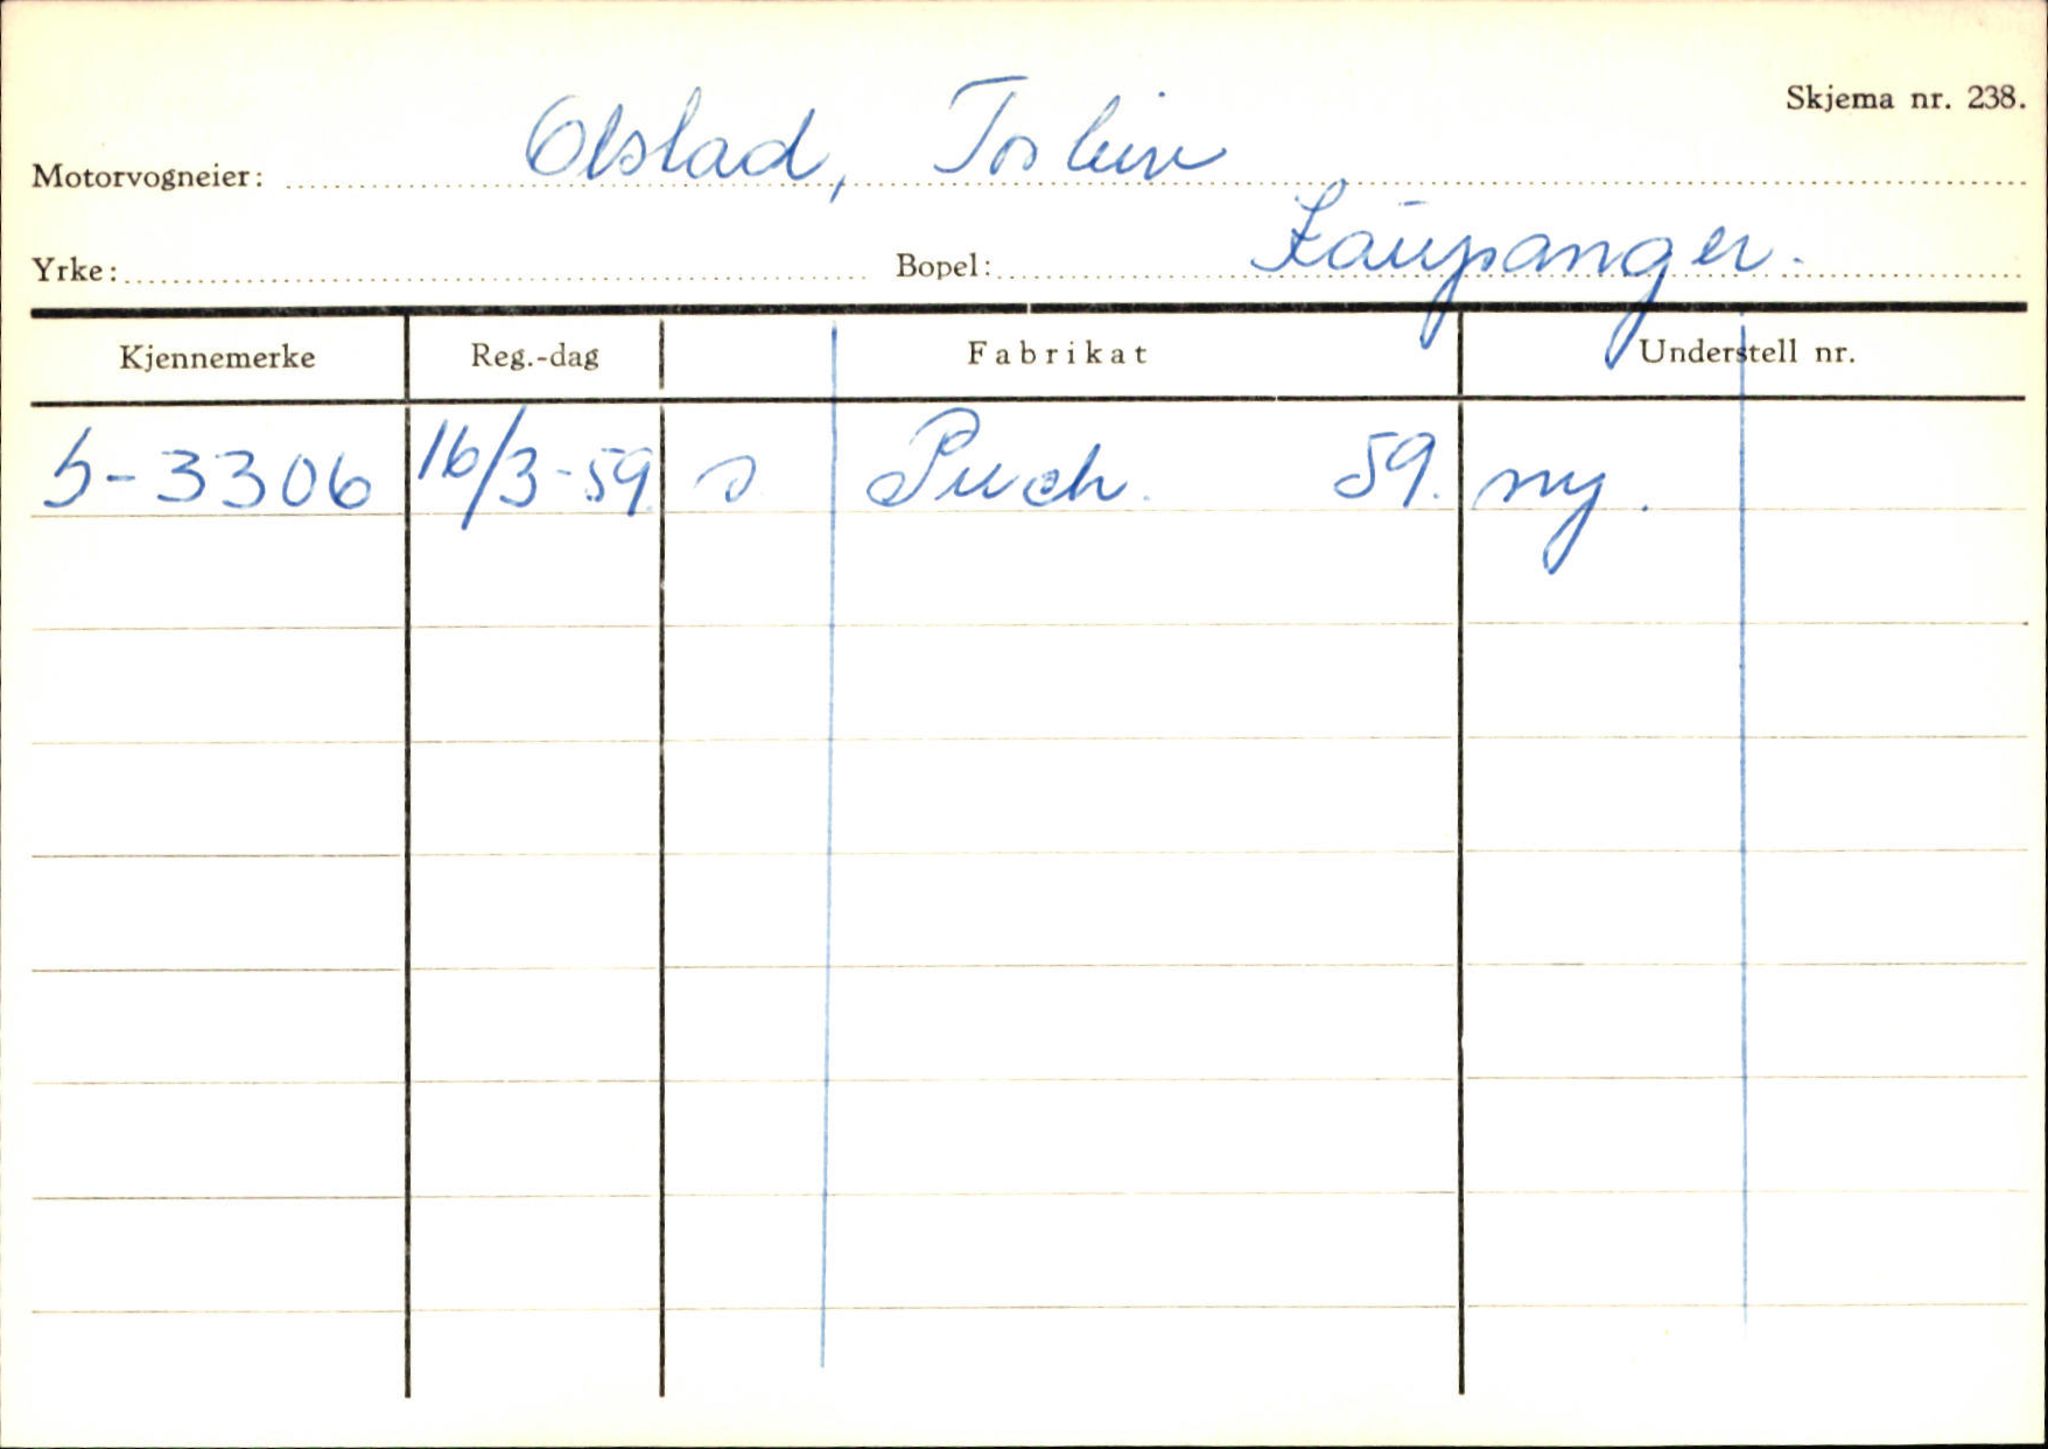 Skjema nr. 238.
Motorvogneier: Olstad, Torleiv
Yrke: Bopel: Kaupanger.
Kjennemerke Reg.-dag Fabrikat Understell nr.
S-3306 16/3-59. s Puch. 59. ny.